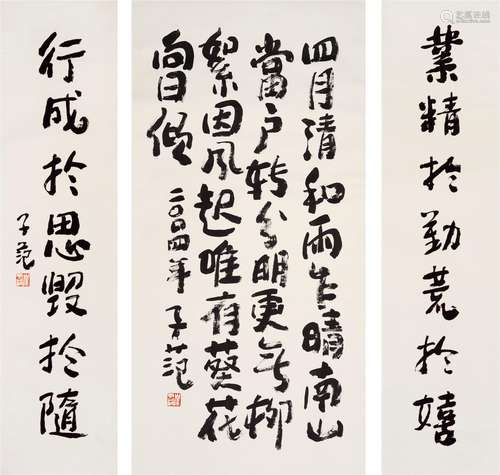 業精於勤荒於嬉
四月清和雨乍晴南山
當户转分明更无柳
絮因风起唯有葵花
向日倾
二〇〇四年 子范
行成於思毁於随
子范